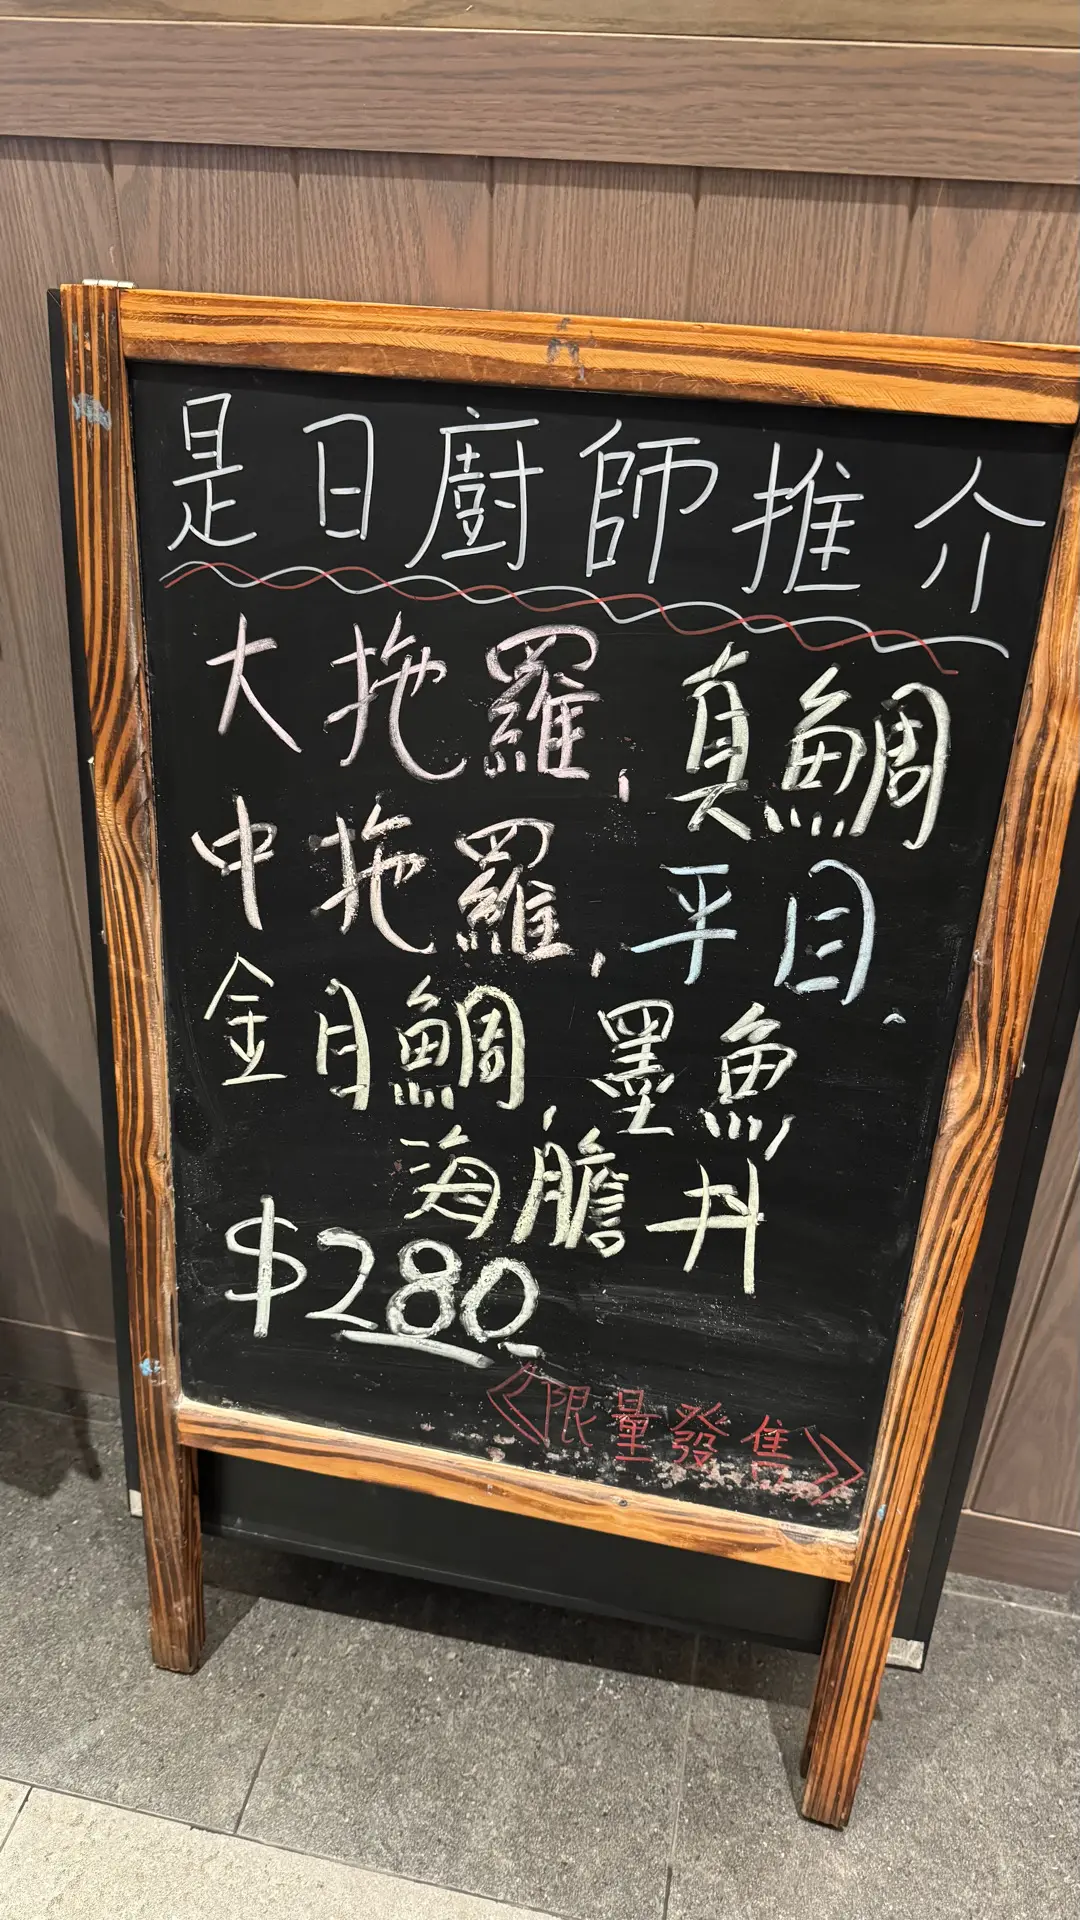 是日廚師推介
大拖羅, 真鯛
中拖羅, 平目.
金目鯛, 墨魚
海膽丼
$280
《限量發售》